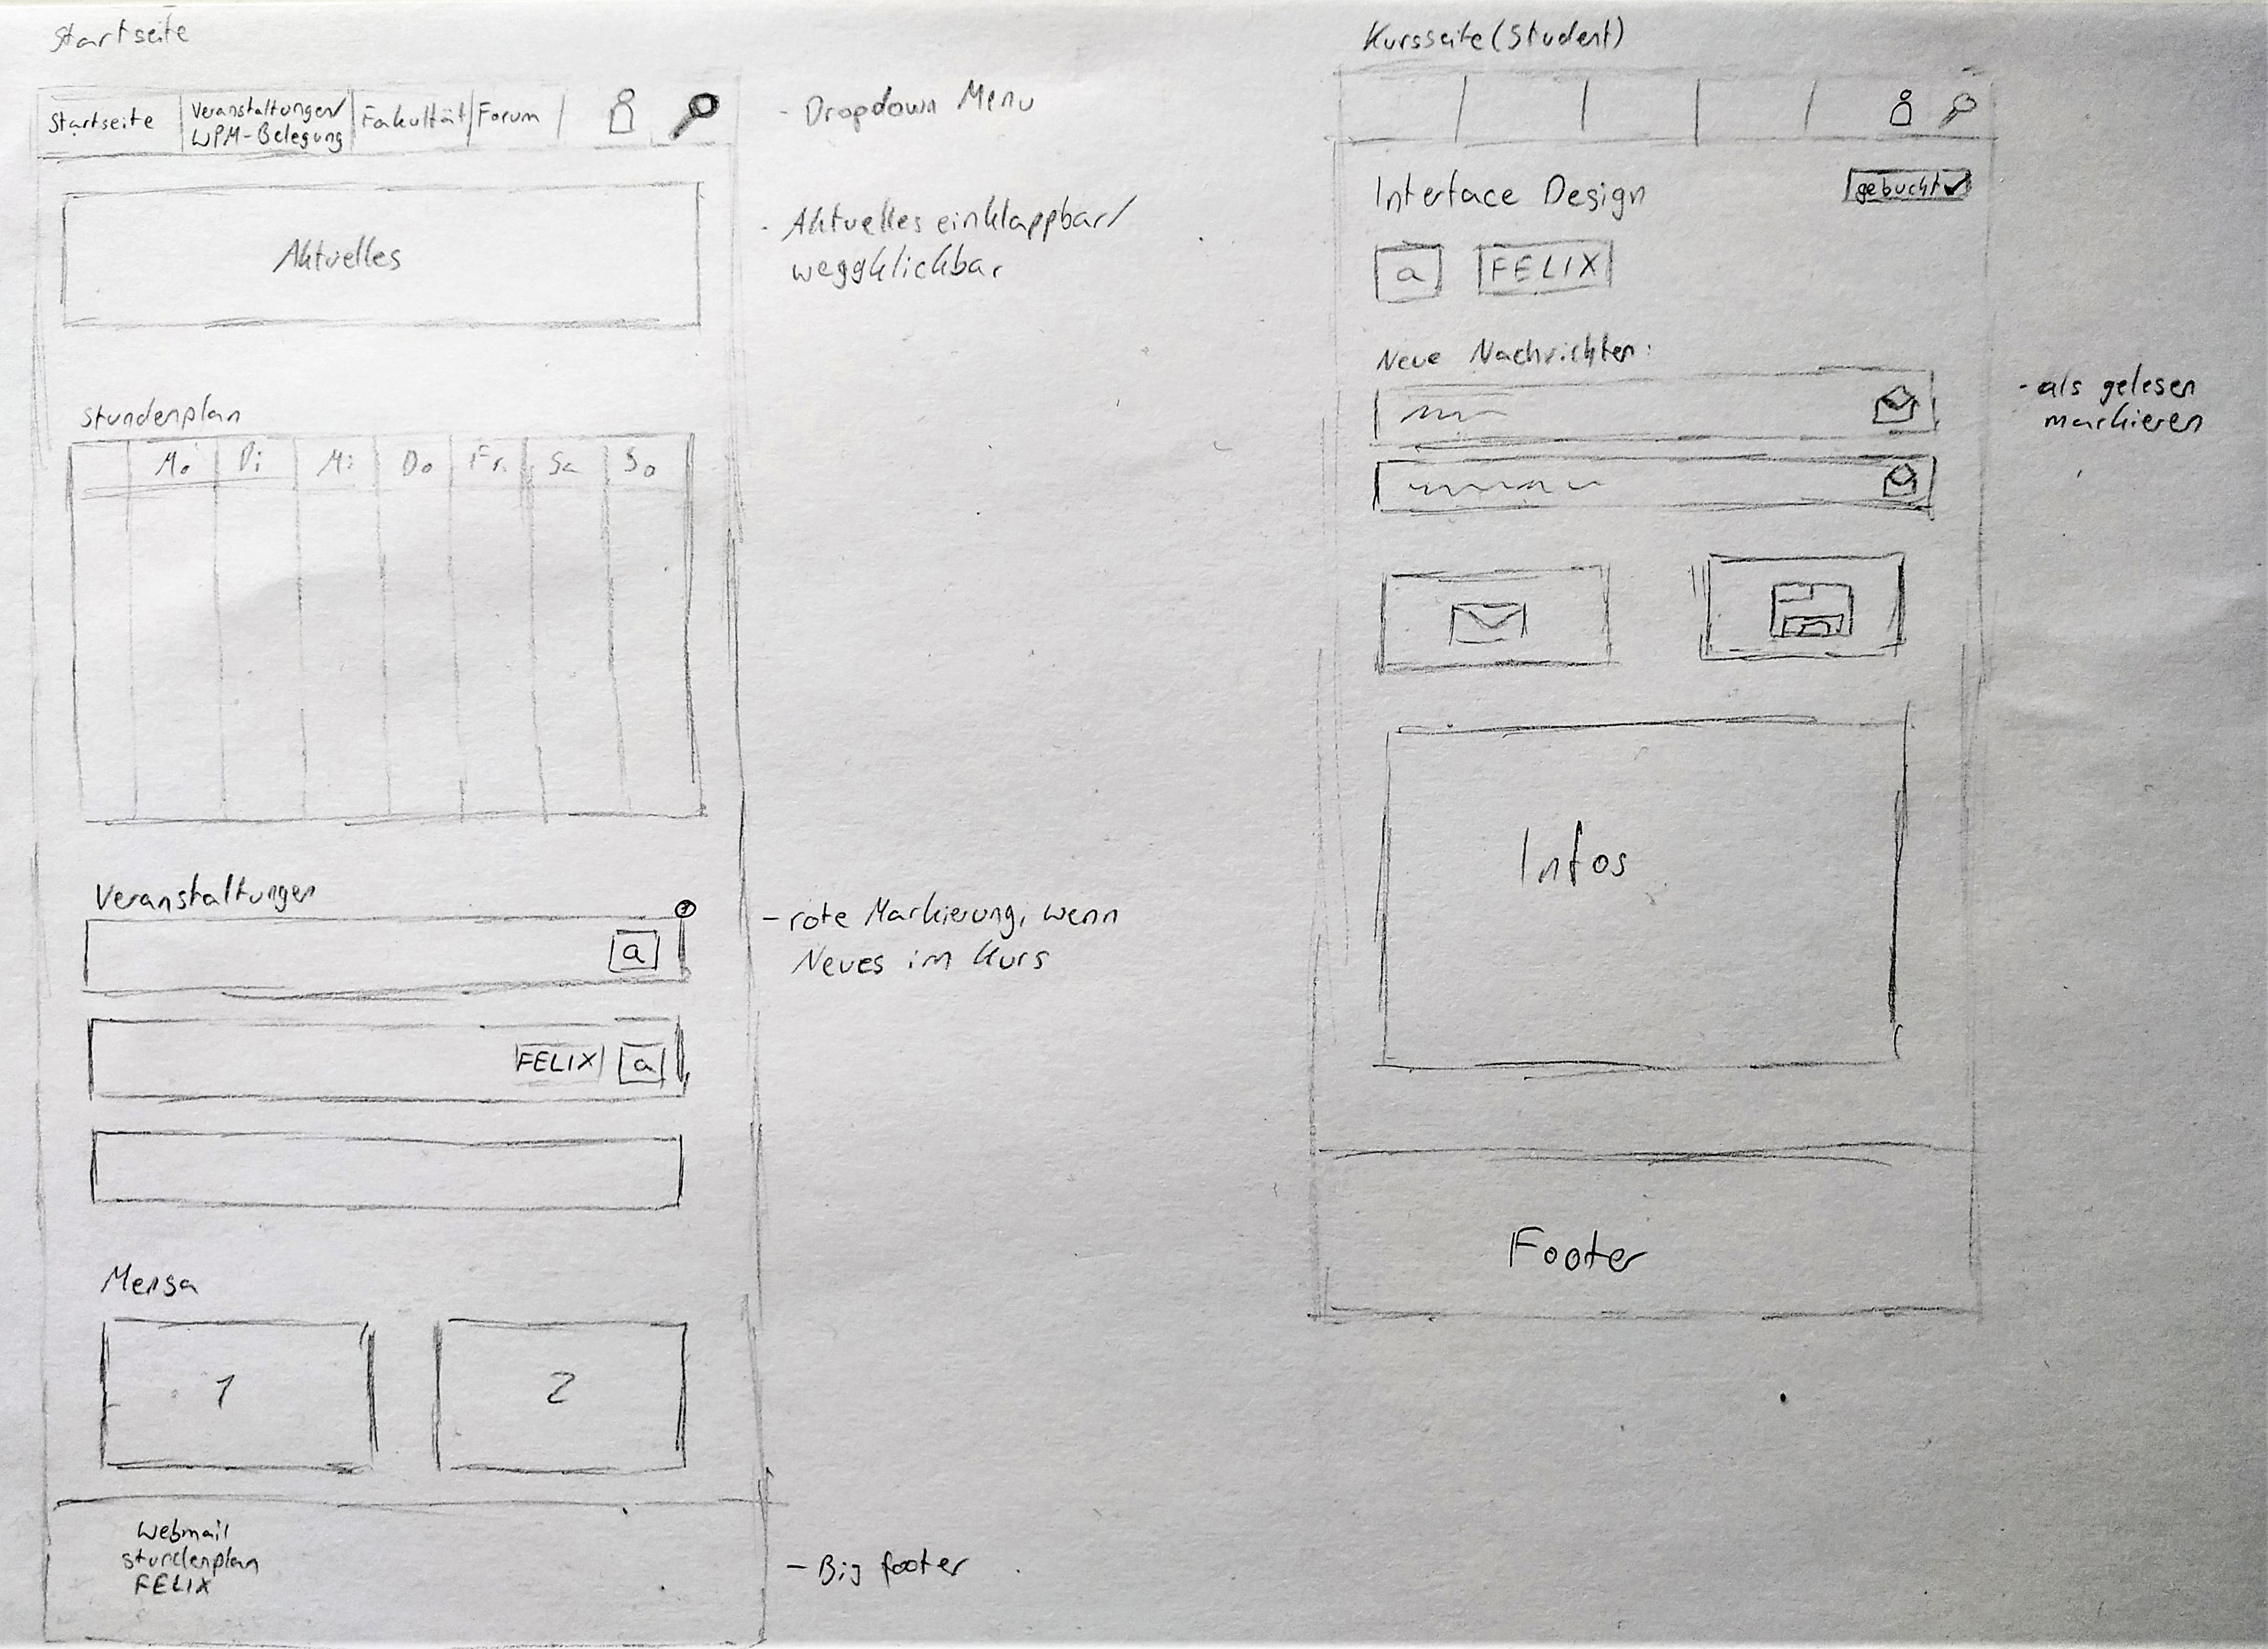 Startseite
Startseite
Veranstaltungen/
WPM-Belegung
Fakultät
Forum
- Dropdown Menu
Aktuelles
- Aktuelles einklappbar/
weggklickbar
Stundenplan
Mo Di Mi Do Fr. Sa So
Veranstaltungen
a
- rote Markierung, wenn
Neues im Kurs
FELIX a
Mensa
1 2
Webmail
Stundenplan
FELIX
- Big footer
Kursseite (Student)
Interface Design
gebucht✓
a FELIX
Neue Nachrichten:
- als gelesen
markieren
Infos
Footer